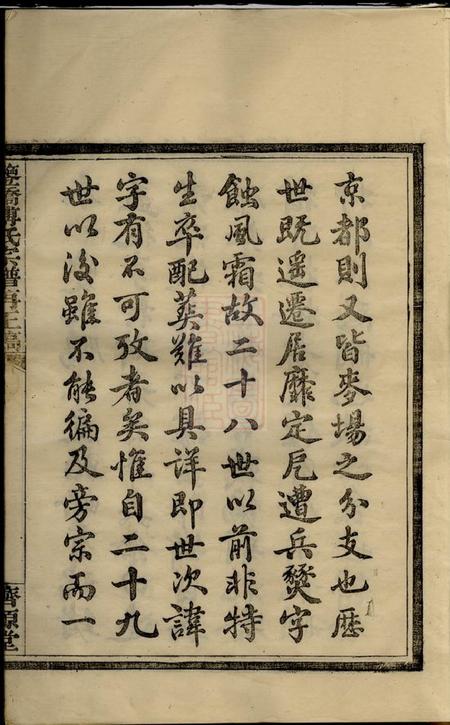 京都則又皆麥場之分支也歷
世既遥遷居靡定戹遭兵燹字
蝕風霜故二十八世以前非特
生卒配葬難以具詳即世次諱
字有不可攷者矣惟自二十九
世以後雖不能徧及旁宗而一
傅氏宗譜